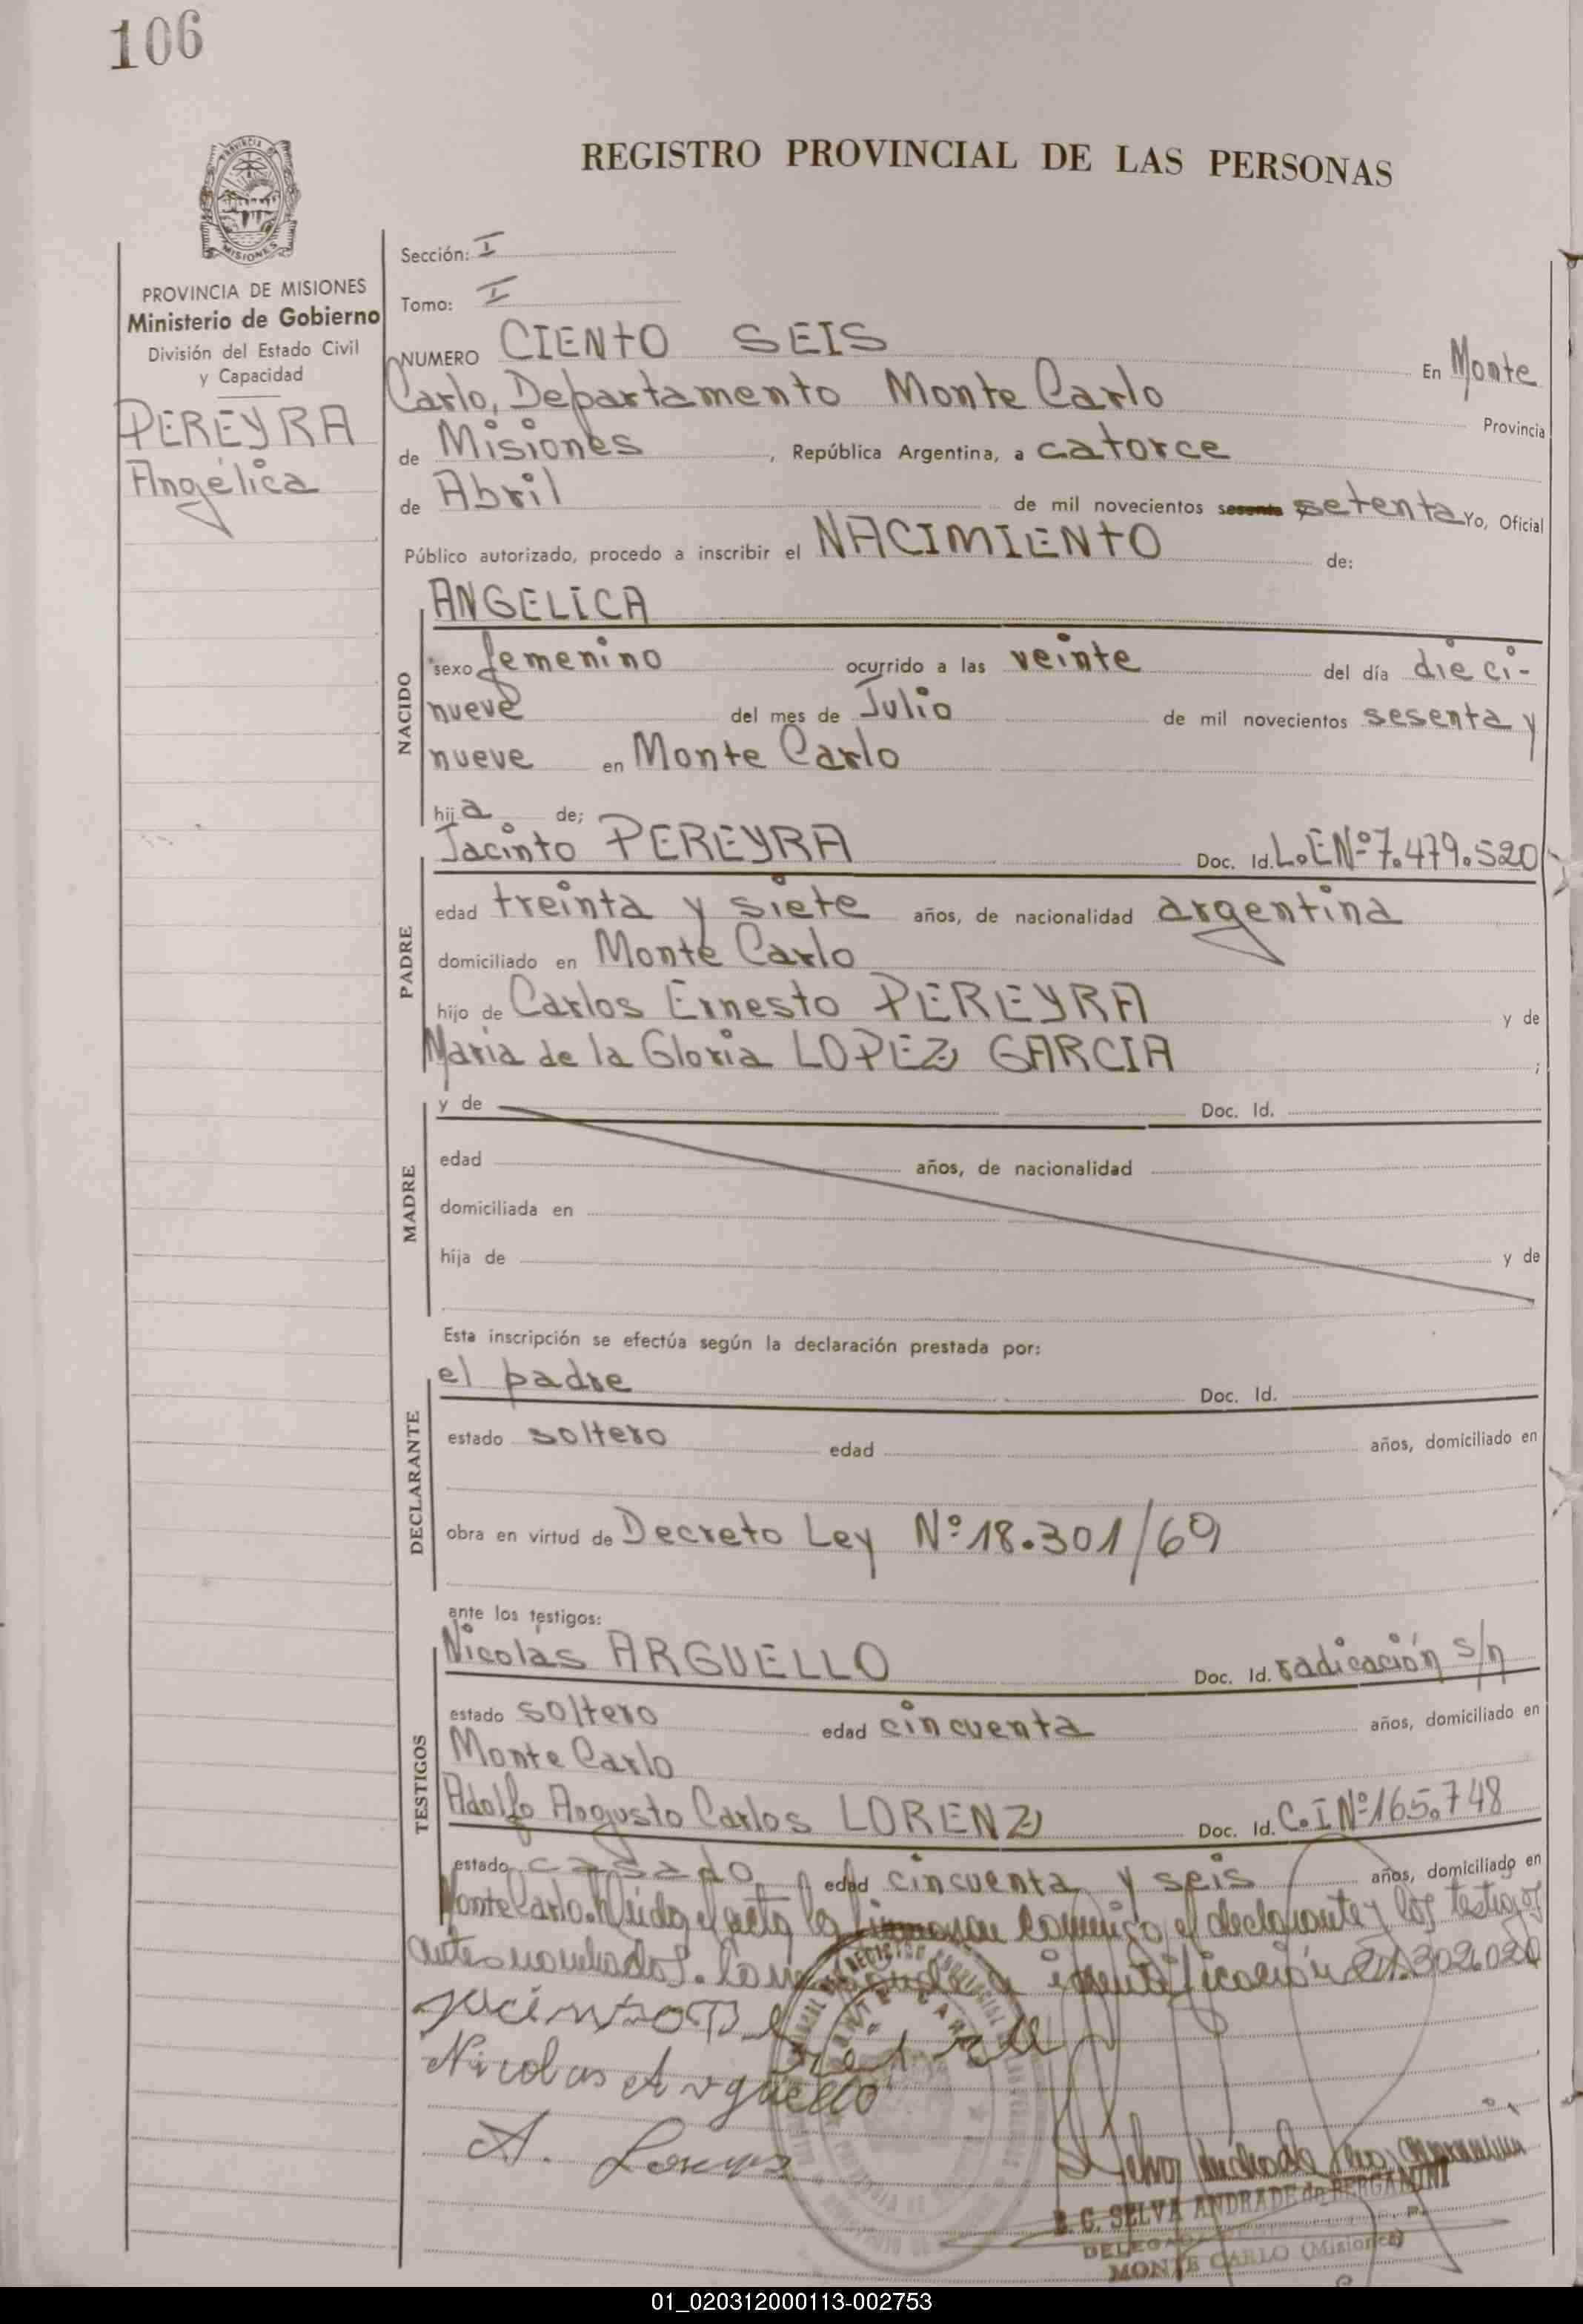 106
REGISTRO PROVINCIAL DE LAS PERSONAS
MISIONES
PROVINCIA DE MISIONES
Ministerio de Gobierno
División del Estado Civil
y Capacidad
PEREYRA
Angélica
Sección: I
Tomo: I
NUMERO CIENTO SEIS En Monte
Carlo, Departamento Monte Carlo Provincia
de Misiones, República Argentina, a catorce
de Abril de mil novecientos sesenta setenta Yo, Oficial
Público autorizado, procedo a inscribir el NACIMIENTO de:
NACIDO
ANGELICA
sexo femenino ocurrido a las veinte del día dieci-
nueve del mes de Julio de mil novecientos sesenta y
nueve en Monte Carlo
hija de;
PADRE
Jacinto PEREYRA Doc. Id. L.E Nº 7.479.520
edad treinta y siete años, de nacionalidad argentina
domiciliado en Monte Carlo
hijo de Carlos Ernesto PEREYRA y de
Maria de la Gloria LOPEZ GARCIA ;
MADRE
y de Doc. Id.
edad años, de nacionalidad
domiciliada en
hija de y de
Esta inscripción se efectúa según la declaración prestada por:
DECLARANTE
el padre Doc. Id.
estado soltero edad años, domiciliado en
obra en virtud de Decreto Ley Nº 18.301/69
ante los testigos:
TESTIGOS
Nicolás ARGUELLO Doc. Id. radicación s/n
estado soltero edad cincuenta años, domiciliado en
Monte Carlo
Adolfo Augusto Carlos LORENZ Doc. Id. C.I Nº 165.748
estado casado edad cincuenta y seis años, domiciliado en
Monte Carlo. Leída el acta la firman conmigo, el declarante y los testigos
antes nombrados. identificación 21.302.020
Jacinto
Nicolas Arguello
A. Lorenz
B. C. SELVA ANDRADE de BERGAMINI
MONTE CARLO (Misiones)
01_020312000113-002753